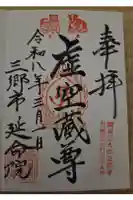 奉拝
虚空蔵尊
令和八年三月一日
三郷市 延命院